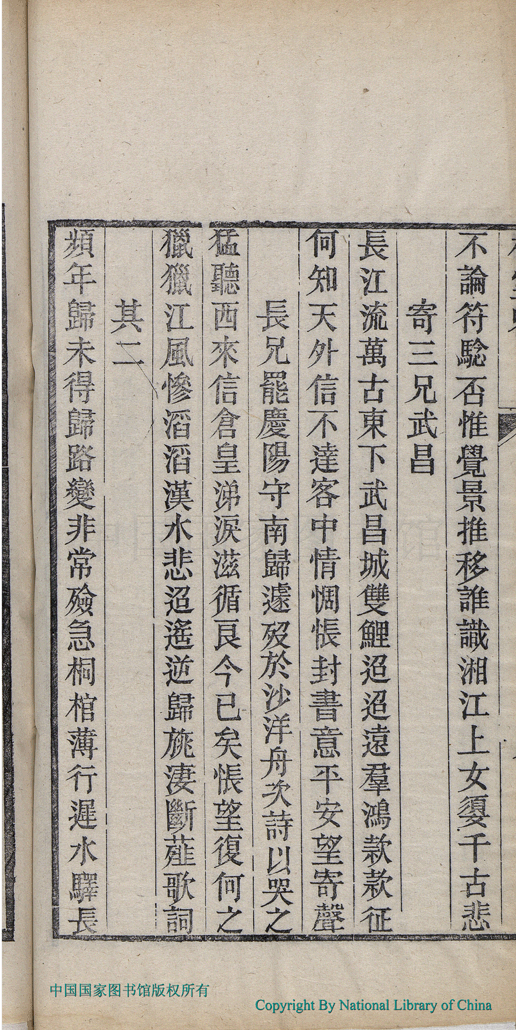 不論符驗否惟覺景推移誰識湘江上女嬃千古悲
寄三兄武昌
長江流萬古東下武昌城雙鯉迢迢遠羣鴻款款征
何知天外信不達客中情惆悵封書意平安望寄聲
長兄罷慶陽守南歸遽歿於沙洋舟次詩以哭之
猛聽西來信倉皇涕淚滋循良今已矣悵望復何之
獵獵江風慘滔滔漢水悲迢遙逆歸旐淒斷薤歌詞
其二
頻年歸未得歸路變非常殮急桐棺薄行遲水驛長
中国国家图书馆版权所有
Copyright By National Library of China